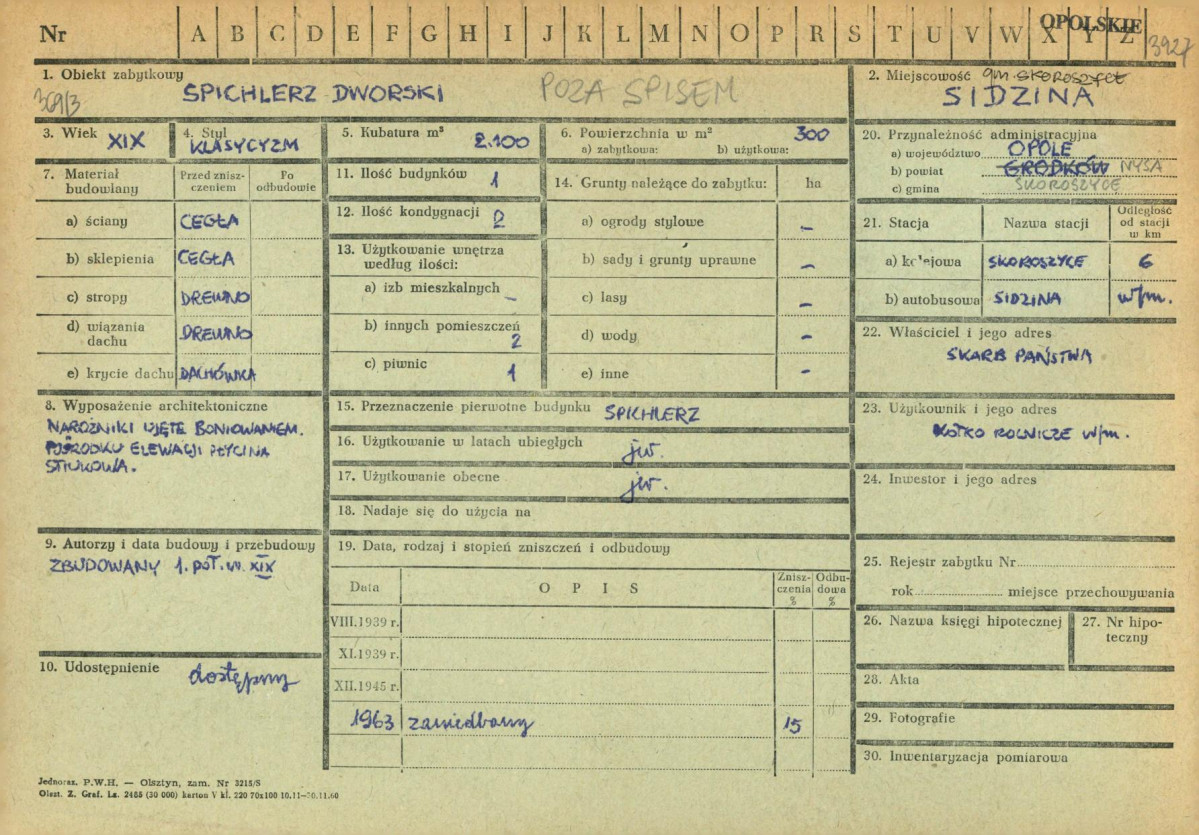 OPOLSKIE
Nr A B C D E F G H I J K L M N O P R S T U V W X Y Z
3927
1. Obiekt zabytkowy
369/3
SPICHLERZ DWORSKI POZA SPISEM
2. Miejscowość gm. SKOROSZYCE
SIDZINA
3. Wiek XIX
4. Styl
KLASYCYZM
5. Kubatura m³ 2.100
6. Powierzchnia w m² 300
a) zabytkowa: b) użytkowa:
7. Materiał budowiany
Przed znisz-
czeniem
Po
odbudowie
a) ściany CEGŁA
b) sklepienia CEGŁA
c) stropy DREWNO
d) wiązania
dachu DREWNO
e) krycie dachu DACHÓWKA
8. Wyposażenie architektoniczne
NAROŻNIKI UJĘTE BONIOWANIEM.
POŚRODKU ELEWACJI PŁYCINA
STIUKOWA.
9. Autorzy i data budowy i przebudowy
ZBUDOWANY 1. POŁ. W. XIX
10. Udostępnienie dostępny
11. Ilość budynków 1
12. Ilość kondygnacji 2
13. Użytkowanie wnętrza
według ilości:
a) izb mieszkalnych –
b) innych pomieszczeń
2
c) piwnic 1
14. Grunty należące do zabytku: ha
a) ogrody stylowe –
b) sady i grunty uprawne –
c) lasy –
d) wody –
e) inne –
15. Przeznaczenie pierwotne budynku SPICHLERZ
16. Użytkowanie w latach ubiegłych jw.
17. Użytkowanie obecne jw.
18. Nadaje się do użycia na
19. Data, rodzaj i stopień zniszczeń i odbudowy
Data O P I S
Znisz-
czenia
%
Odbu-
dowa
%
VIII.1939 r.
XI.1939 r.
XII.1945 r.
1963 zaniedbany 15
20. Przynależność administracyjna
a) województwo OPOLE
b) powiat GRODKÓW NYSA
c) gmina SKOROSZYCE
21. Stacja Nazwa stacji
Odległość
od stacji
w km
a) kolejowa SKOROSZYCE 6
b) autobusowa SIDZINA w/m.
22. Właściciel i jego adres
SKARB PAŃSTWA
23. Użytkownik i jego adres
KÓŁKO ROLNICZE w/m.
24. Inwestor i jego adres
25. Rejestr zabytku Nr
rok miejsce przechowywania
26. Nazwa księgi hipotecznej
27. Nr hipo-
teczny
28. Akta
29. Fotografie
30. Inwentaryzacja pomiarowa
Jednoraz. P.W.H. — Olsztyn, zam. Nr 3215/S
Olszt. Z. Graf. La. 2485 (30 000) karton V kl. 220 70x100 10.11—20.11.60